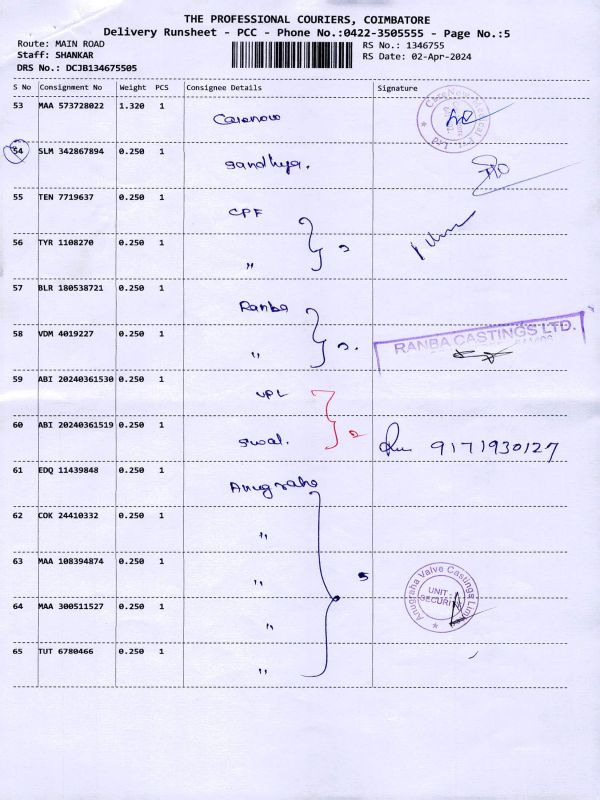 THE PROFESSIONAL COURIERS, COIMBATORE
Delivery Runsheet - PCC - Phone No.:0422-3505555 - Page No.:5
Route: MAIN ROAD
RS No.: 1346755
Staff: SHANKAR
RS Date: 02-Apr-2024
DRS No.: DCJB134675505
S No Consignment No Weight PCS Consignee Details Signature
53 MAA 573728022 1.320 1
54 SLM 342867894 0.250 1 Sandhya.
55 TEN 7719637 0.250 1 CPF
56 TYR 1108270 0.250 1 " 2
57 BLR 180538721 0.250 1 Ranba
58 VDM 4019227 0.250 1 " 2. RANBA CASTINGS LTD.
59 ABI 20240361530 0.250 1 UPL
60 ABI 20240361519 0.250 1 Swal. 2 9171930127
61 EDQ 11439848 0.250 1 Anugraha
62 COK 24410332 0.250 1 "
63 MAA 108394874 0.250 1 " 5
64 MAA 300511527 0.250 1 " Anugraha Valve Castings Limited UNIT- SECURITY
65 TUT 6780466 0.250 1 "